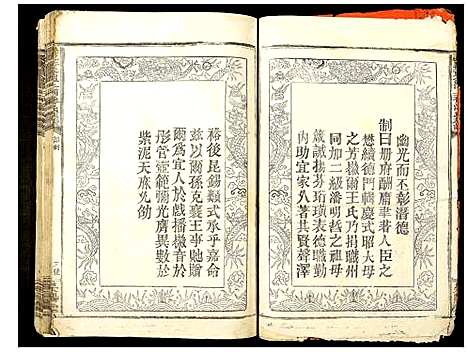 幽光而不彰潛德
制曰冊府酬庸聿著人臣之
懋績德門輯慶式昭大母
之芳徽爾王氏乃捐職州
同加二級潘明哲之祖母
箴誡揚芬珩璜表德職勤
內助宜家久著其賢聲澤
裕後昆錫類式承乎嘉命
茲以爾孫克襄王事貤贈
爾爲宜人於戲播徽音於
彤管壼範彌光膺異數於
紫泥天庥允劭